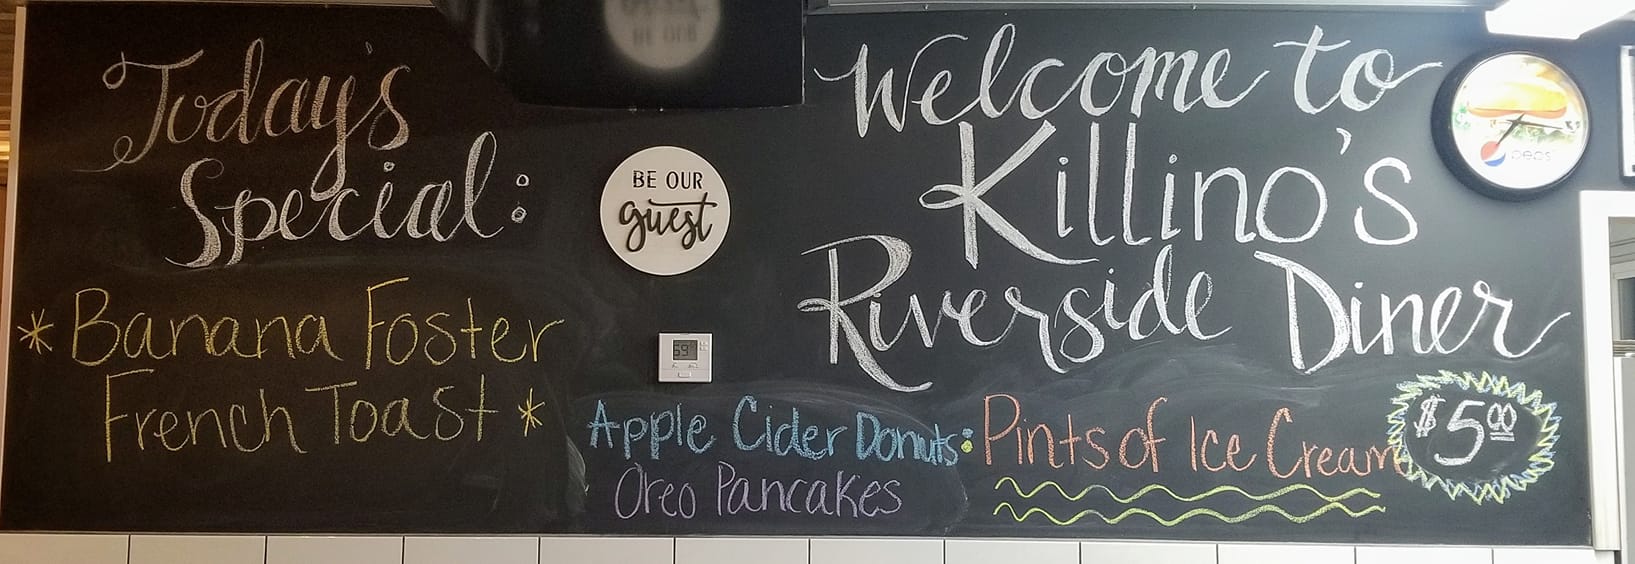 Today's
Special:
*Banana Foster
French Toast*
BE OUR
guest
69°
Welcome to
Killino's
Riverside Diner
Apple Cider Donuts:
Oreo Pancakes
Pints of Ice Cream
$5.00
pepsi